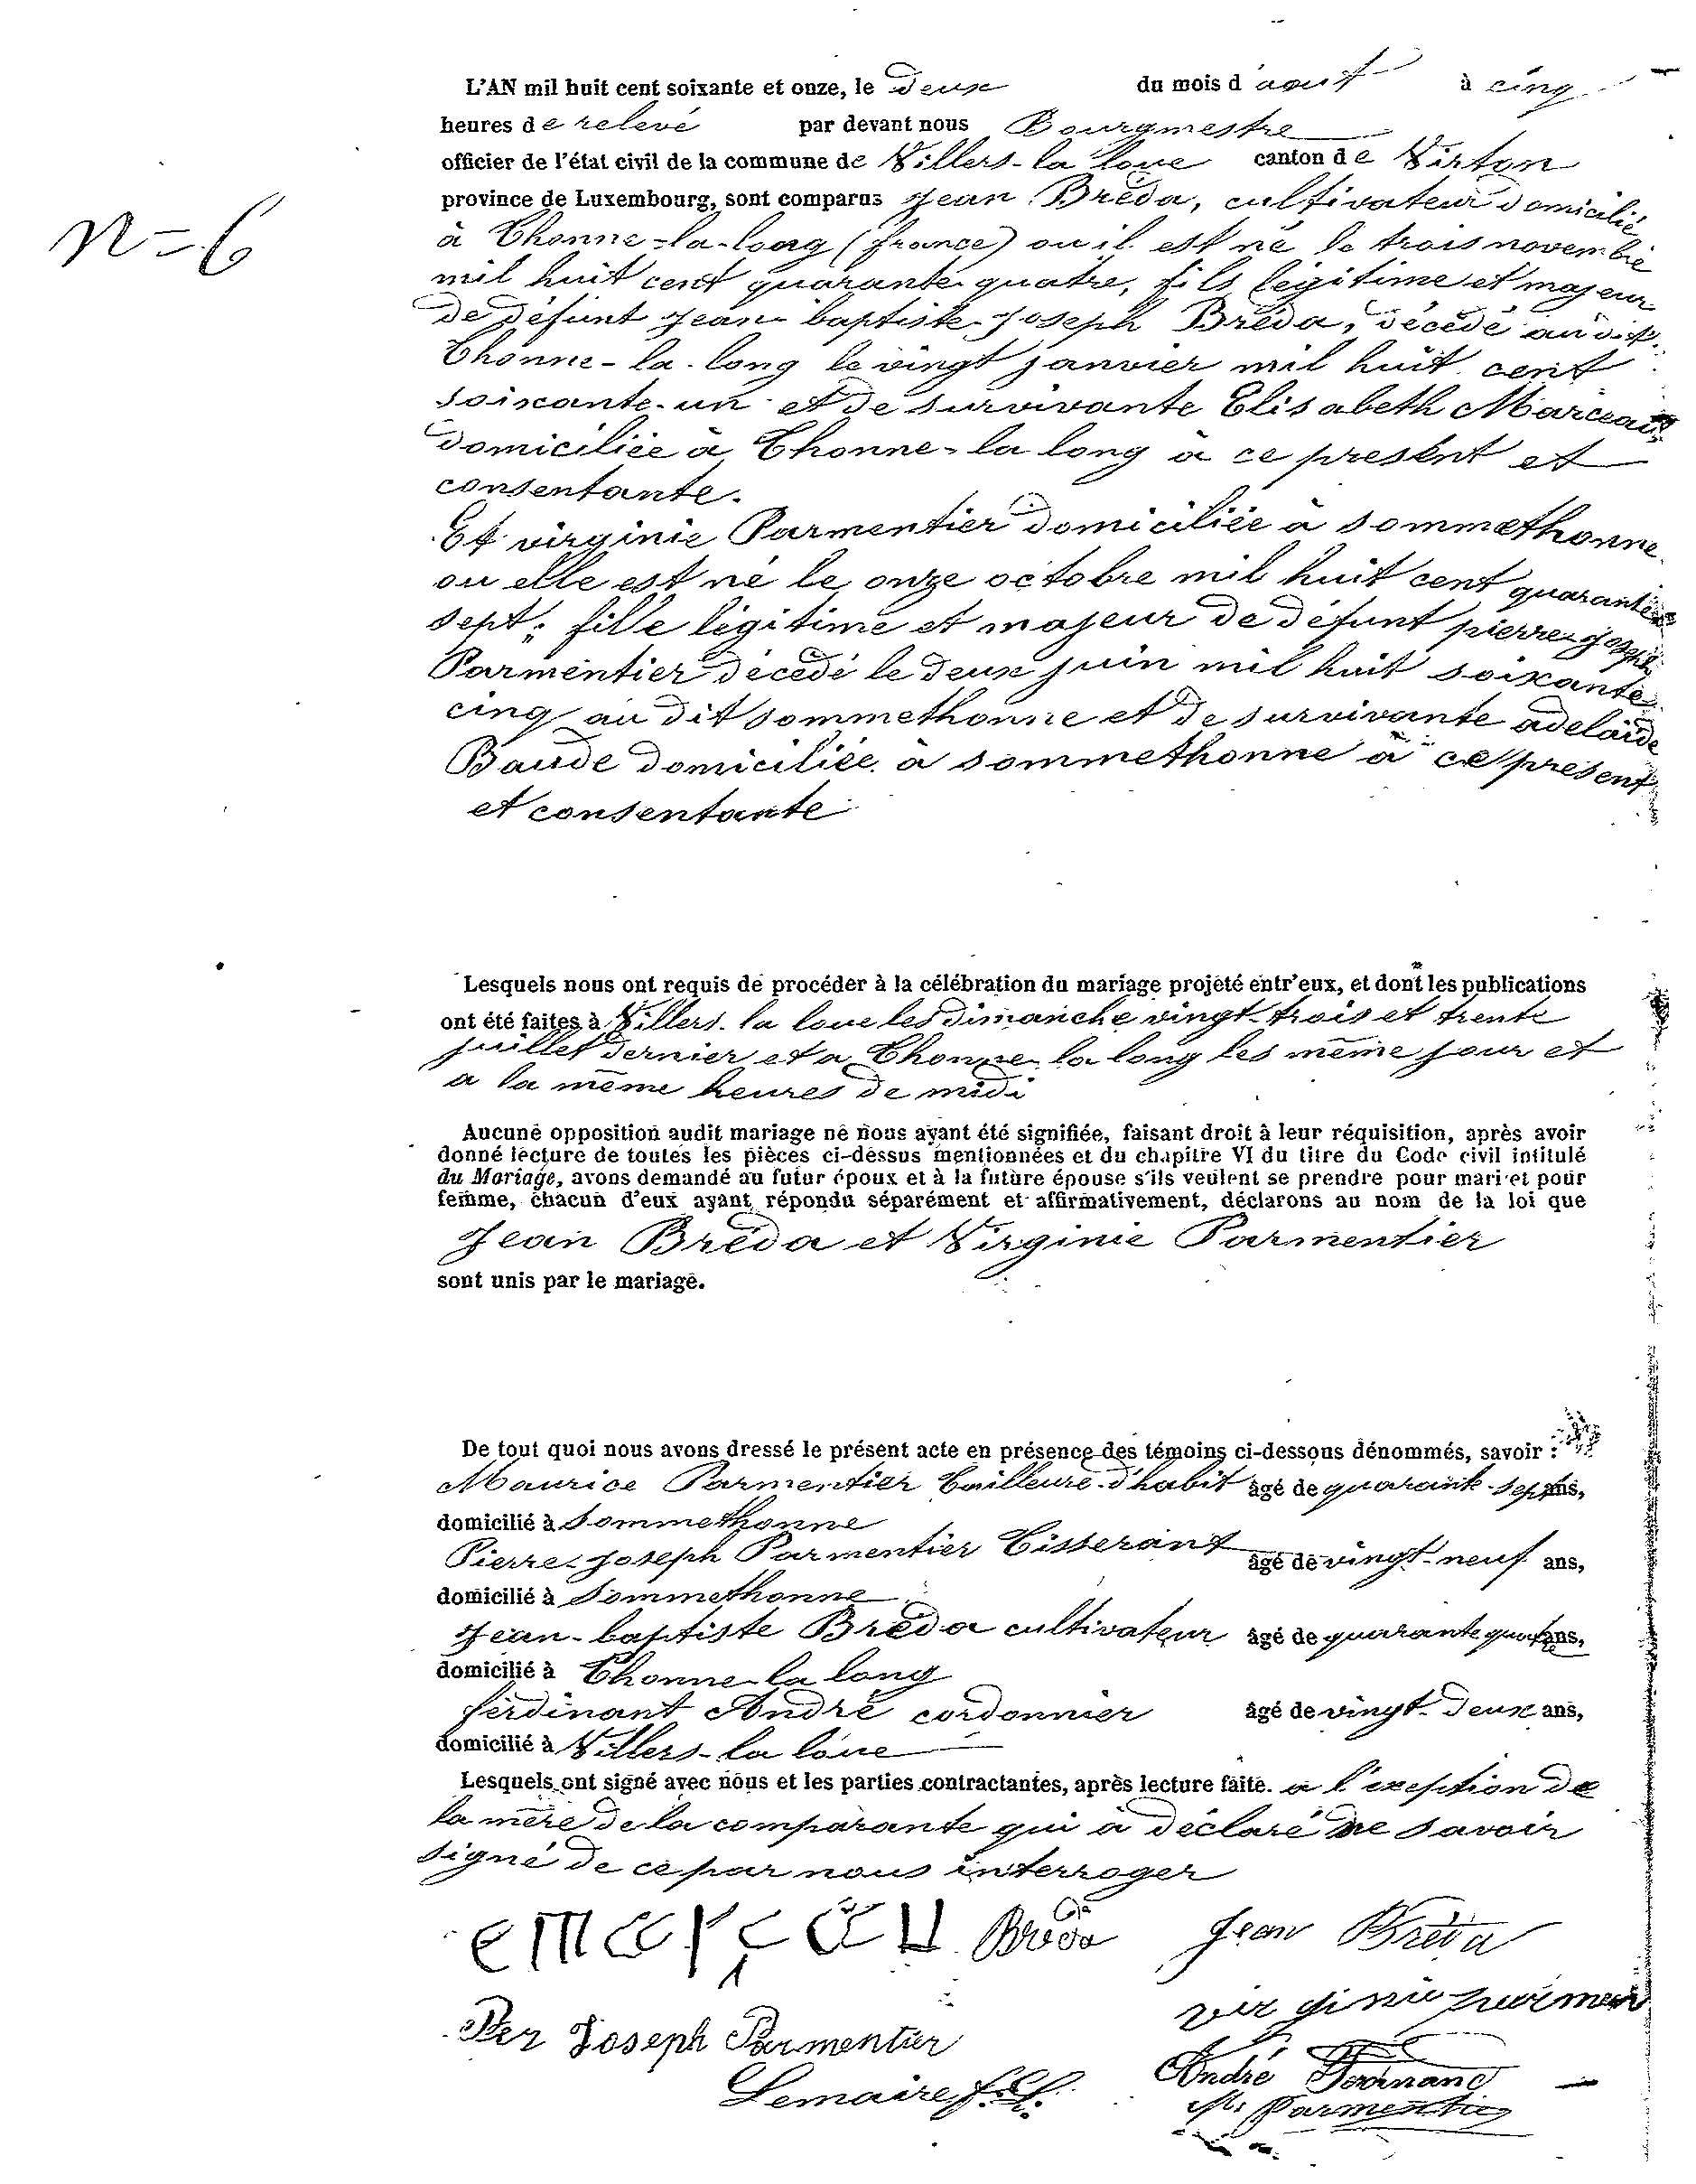 L'AN mil huit cent soixante et onze, le deux du mois d'aout à cinq
heures de relevé par devant nous Bourgmestre
officier de l'état civil de la commune de Villers-la loue canton de Virton
province de Luxembourg, sont comparus Jean Bréda, cultivateur domicilié
n=6
à Thonne-la-long (france) ou il est né le trois novembre
mil huit cent quarante-quatre, fils légitime et majeur
de défunt Jean-baptiste-Joseph Bréda, décédé au dit
Thonne-la-long le vingt janvier mil huit cent
soixante-un et de survivante Elisabeth Marceau
domiciliée à Thonne-la long à ce present et
consentante.
Et virginie Parmentier domiciliée à sommethonne
ou elle est né le onze octobre mil huit cent quarante
sept; fille légitime et majeur de défunt pierre-Joseph
Parmentier décédé le deux juin mil huit soixante
cinq au dit sommethonne et de survivante adelaïde
Baude domiciliée à sommethonne à ce présent
et consentante
Lesquels nous ont requis de procéder à la célébration du mariage projeté entr'eux, et dont les publications
ont été faites à Villers-la loue les dimanche vingt-trois et trente
juillet dernier et a Thonne-la long les même jour et
a la même heures de midi
Aucune opposition audit mariage ne nous ayant été signifiée, faisant droit à leur réquisition, après avoir
donné lecture de toutes les pièces ci-dessus mentionnées et du chapitre VI du titre du Code civil intitulé
du Mariage, avons demandé au futur époux et à la future épouse s'ils veulent se prendre pour mari et pour
femme, chacun d'eux ayant répondu séparément et affirmativement, déclarons au nom de la loi que
Jean Bréda et Virginie Parmentier
sont unis par le mariage.
De tout quoi nous avons dressé le présent acte en présence des témoins ci-dessous dénommés, savoir :
Maurice Parmentier Tailleure-d'habit âgé de quarante-sept ans,
domicilié à Sommethonne
Pierre-Joseph Parmentier Tisserant âgé de vingt-neuf ans,
domicilié à Sommethonne
Jean-baptiste Bréda cultivateur âgé de quarante quatre ans,
domicilié à Thonne-la long
ferdinant André cordonnier âgé de vingt-deux ans,
domicilié à Villers-la loue
Lesquels ont signé avec nous et les parties contractantes, après lecture faite. a l'exeption de
la mère de la comparante qui à déclaré ne savoir
signé de ce par nous interroger
emarçau Bréda Jean Bréda
virginie parmen
Per Joseph Parmentier
André Ferdinand
Lemaire f.
M. Parmentier